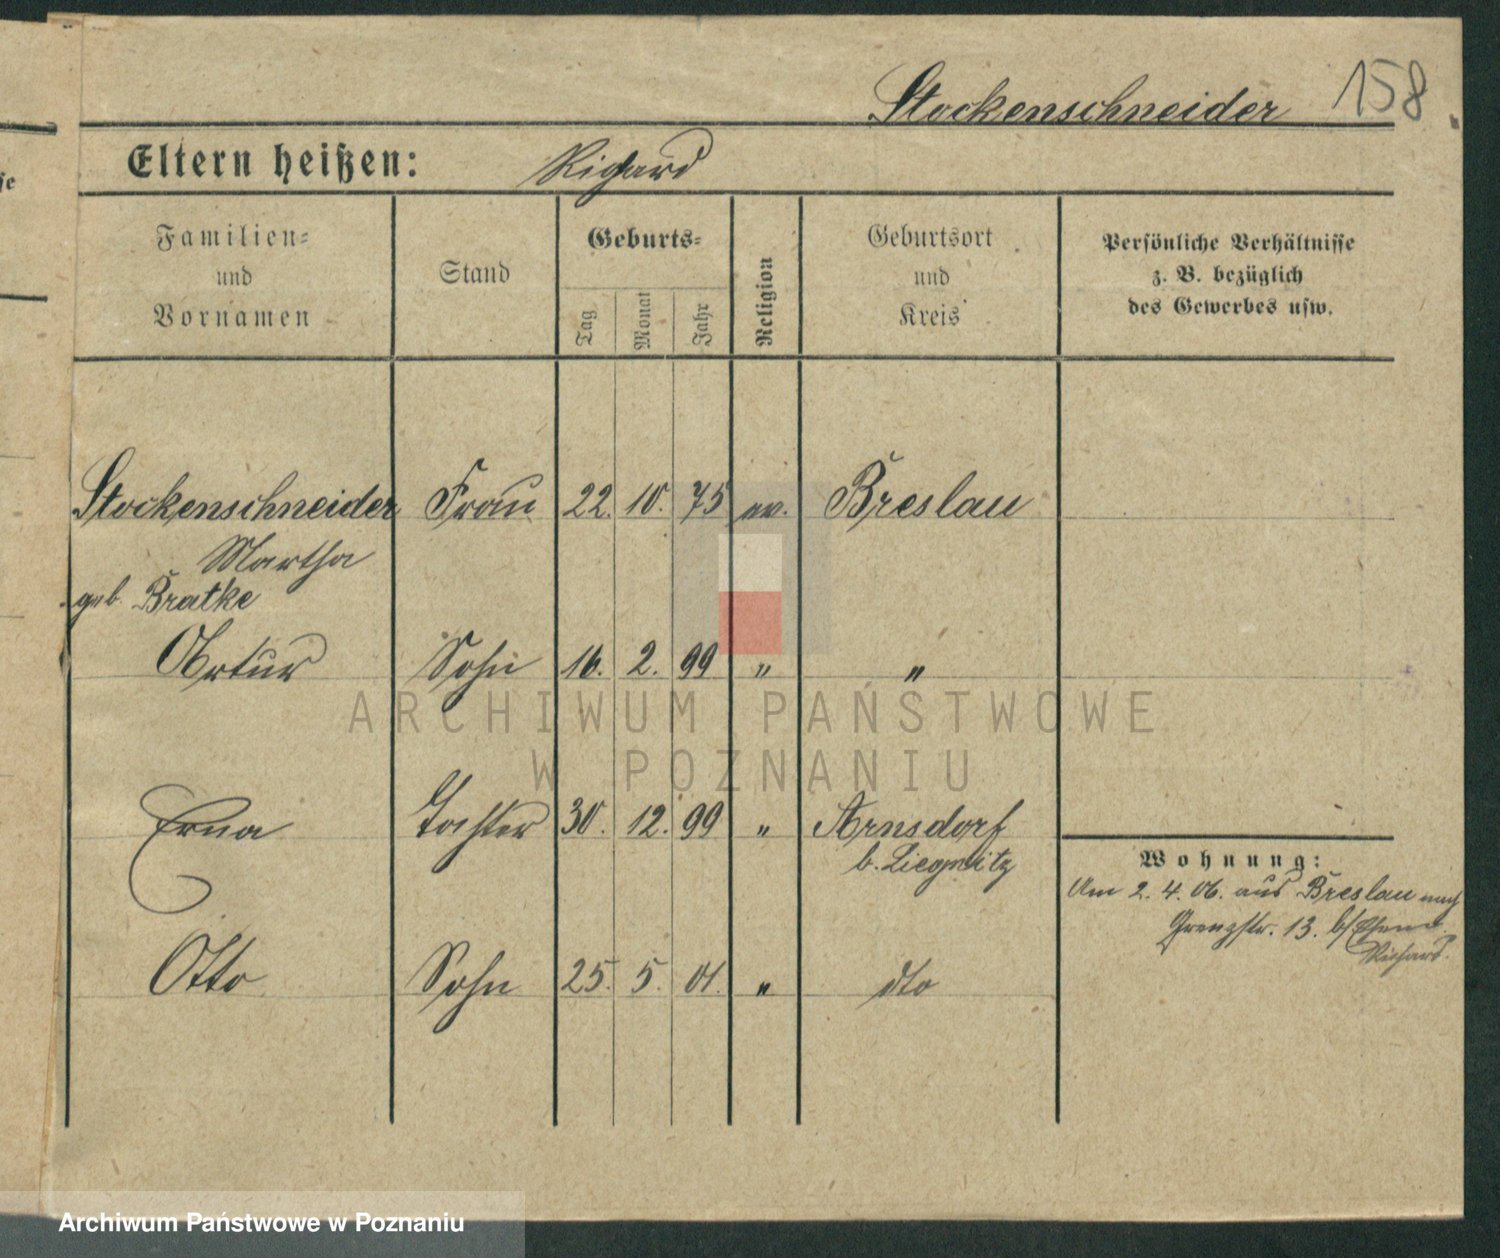 Stockenschneider 158
Eltern heißen: Richard
se
Familien-
und
Vornamen
Stand
Geburts-
Tag
Monat
Jahr
Religion
Geburtsort
und
Kreis
Persönliche Verhältnisse
z. B. bezüglich
des Gewerbes usw.
Stockenschneider Frau 22. 10. 75 ev. Breslau
Martha
geb. Bratke
Artur Sohn 16. 2. 99 " "
ARCHIWUM PAŃSTWOWE
W POZNANIU
Erna Tochter 30. 12. 99 " Arnsdorf
b. Liegnitz
Wohnung:
Am 2. 4. 06. aus Breslau nach
Grenzstr. 13. b/Ehem.
Richard.
Otto Sohn 25. 5. 01. " dto
Archiwum Państwowe w Poznaniu